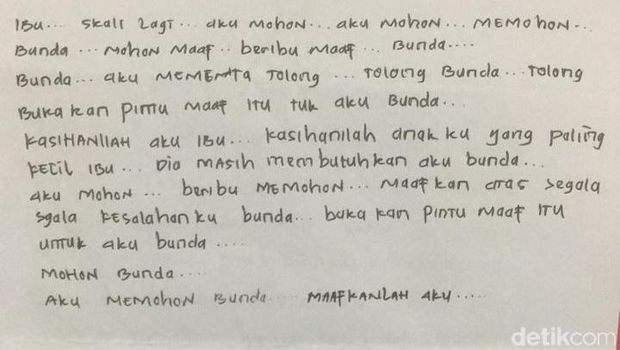 IBU... SKALI LAGI... AKU MOHON... AKU MOHON... MEMOHON...
Bunda... MOHON MAAF.. beribu MAAF... Bunda....
Bunda... AKU MEMENTA TOLONG... TOLONG Bunda... TOLONG
BUKA KAN PINTU MAAF ITU TUK AKU Bunda...
KASIHANILAH AKU IBU... KASIHANILAH ANAK KU YANG PALING
KECIL IBU... DIA MASIH MEMBUTUHKAN AKU BUNDA...
AKU MOHON... beribu MEMOHON... MAAFKAN ATAS SEGALA
SGALA KESALAHANKU BUNDA... BUKA KAN PINTU MAAF ITU
UNTUK AKU BUNDA....
MOHON Bunda....
AKU MEMOHON Bunda.... MAAFKANLAH AKU.....
detikcom